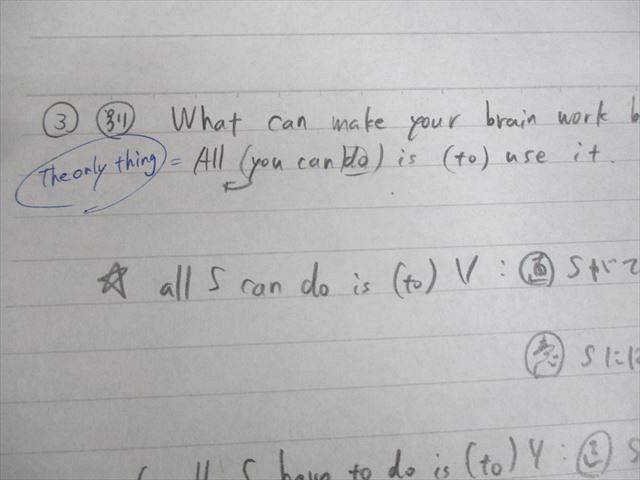 ③ 別 What can make your brain work b
The only thing = All (you can do) is (to) use it.
☆ all S can do is (to) V : 直 Sがで
意 Sには
all S have to do is (to) V :